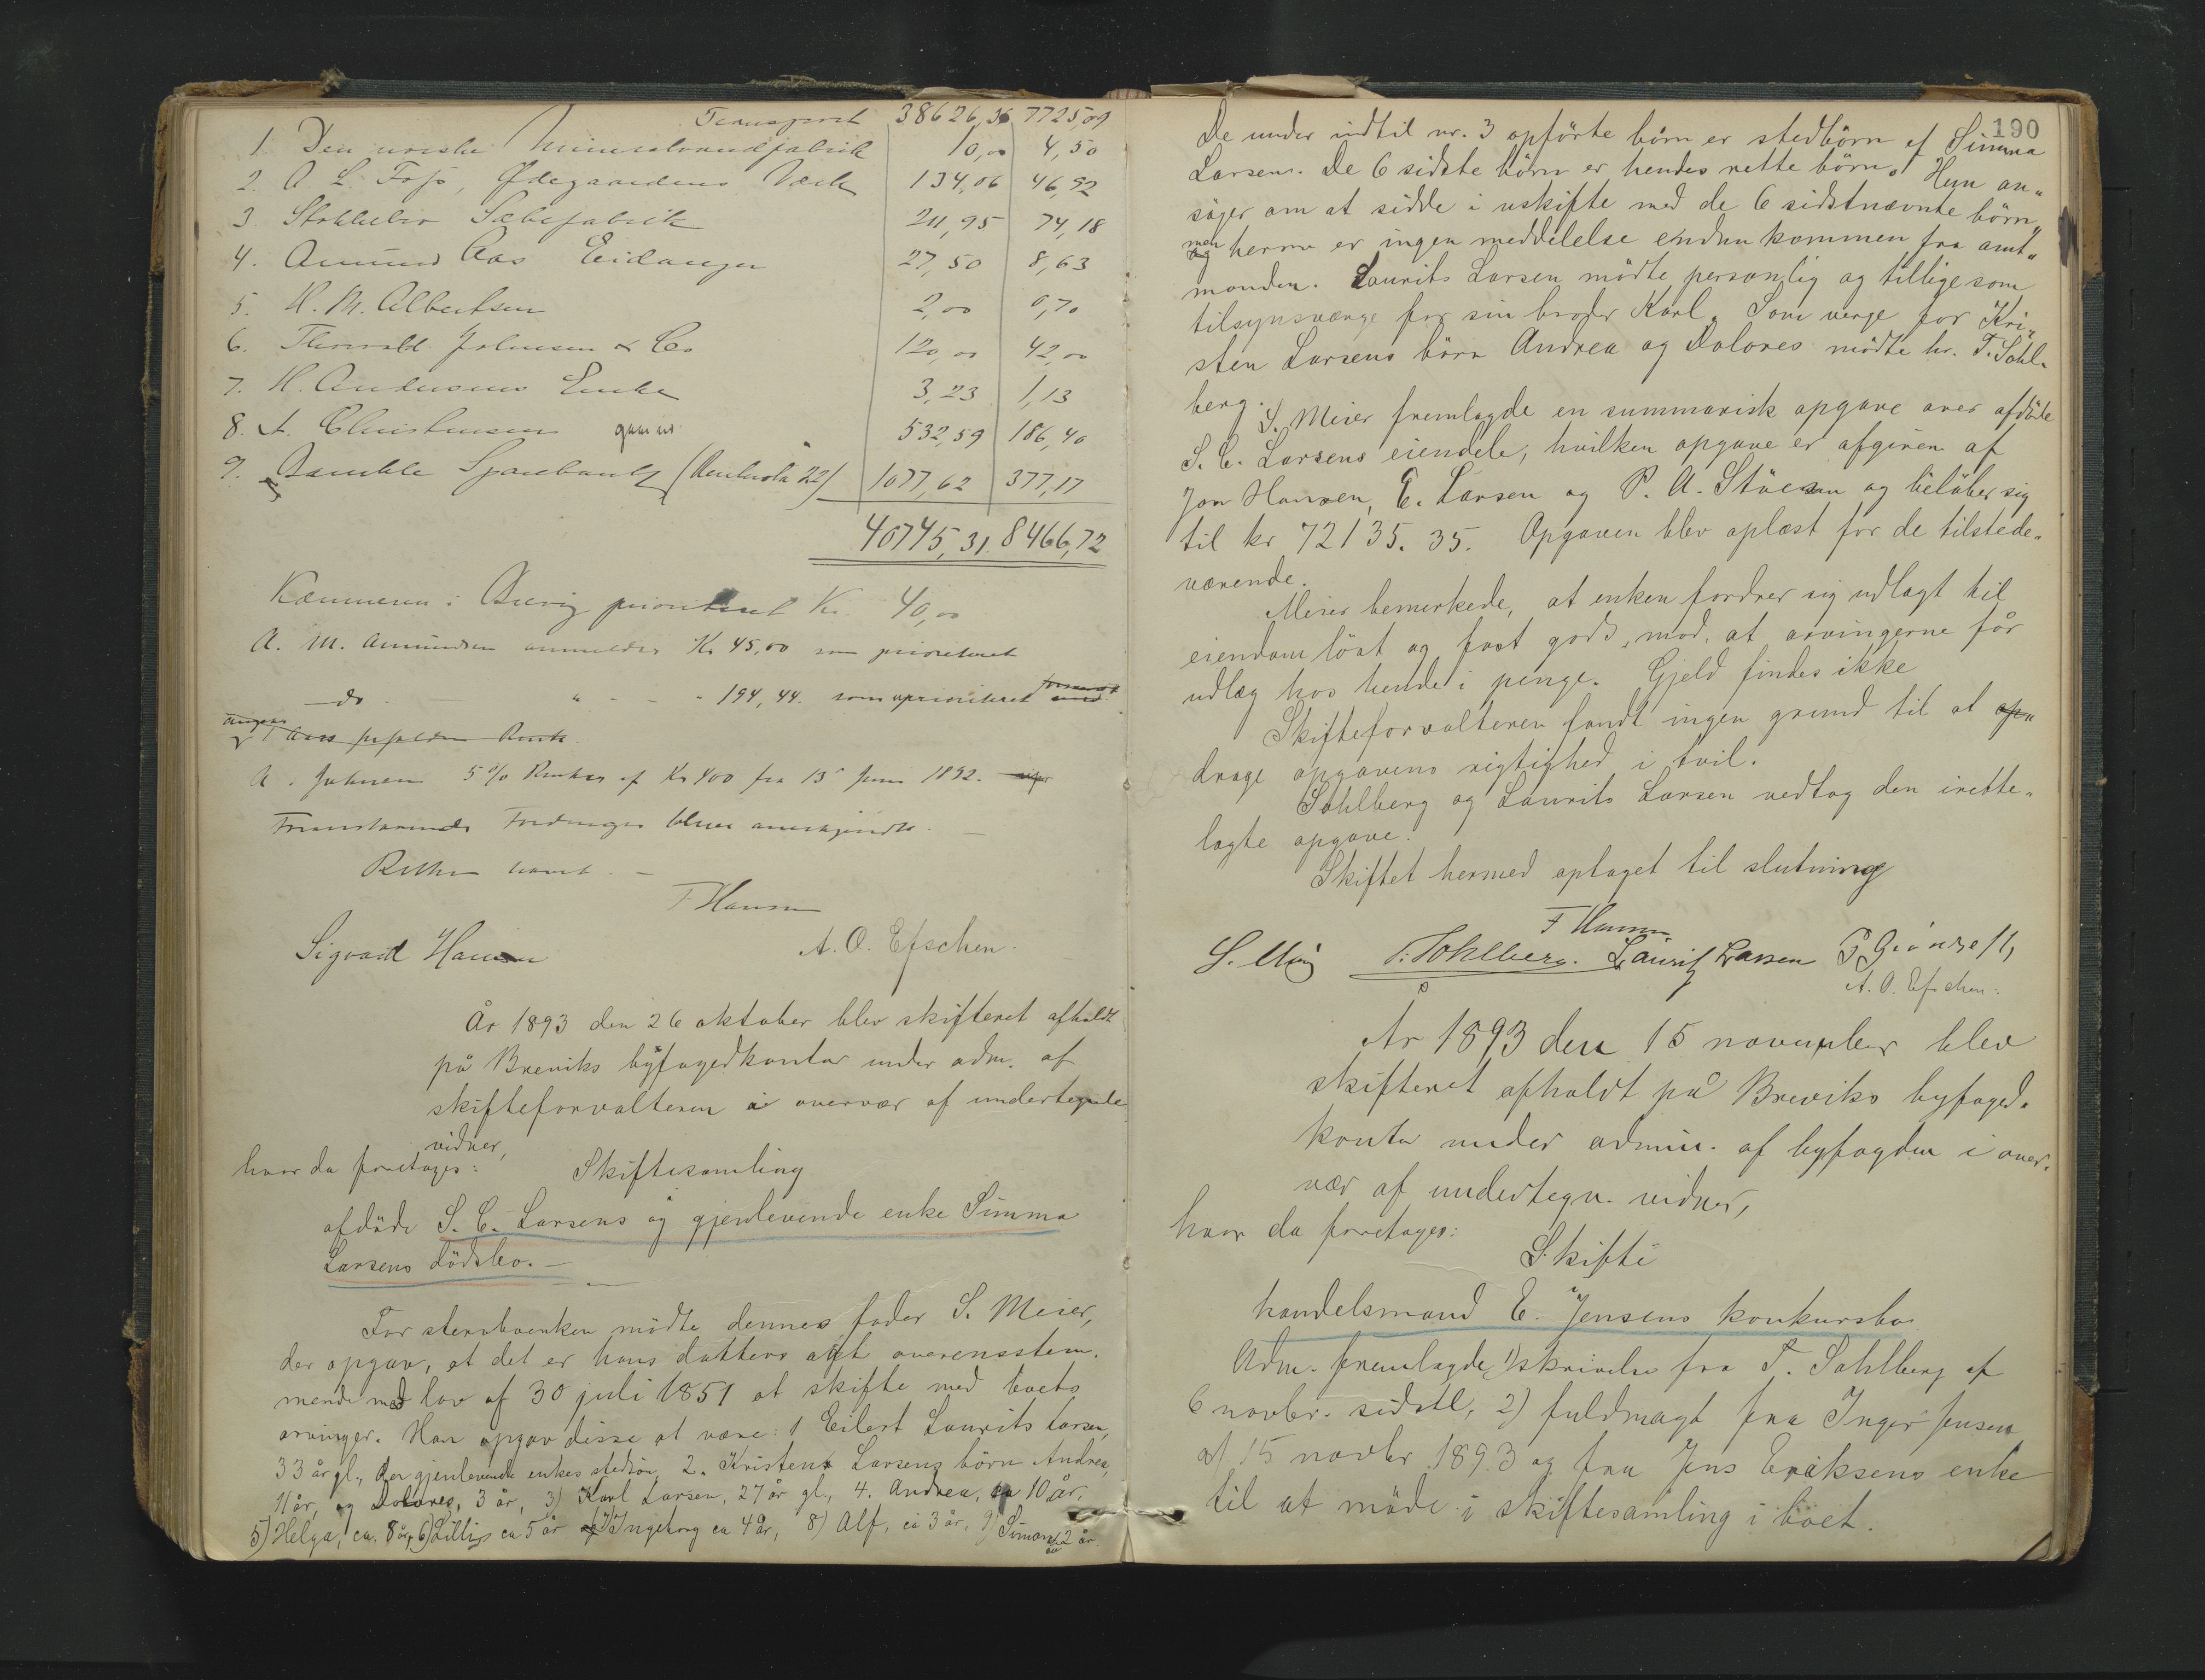 Transport 38626,36 7725,09
1. Den norske Mineralvandfabrik 10,00 4,50
2. A L. Foss, Ødegaardens Værk 134,06 46,92
3. Stokkebro Sæbefabrik 211,95 74,18
4. Amund Aas Eidanger 27,50 8,63
5. H. M. Albertsen 2,00 0,70
6. Thorvald Johnsen & Co 120,00 42,00
7. H. Andersens Enke 3,23 1,13
8. A. Christensen 532,59 186,40
9. Bamble Sparebank 1077,62 377,17
40745,31. 8466,72
Kæmneren i Brevig prioriteret Kr. 40,00
A. M. Amundsen anmeldes Kr 45,00 som prioriteret
do " - - 194,44. som uprioriteret
A. Johnsen 5% Renter af Kr 400 fra 13 Juni 1892.
Foranstaaende Fordringer blev anerkjendte.
Retten hævet. –
F Hansen
Sigvard Hansen A. O. Efschen.
År 1893 den 26 oktober blev skifteret afholdt
på Breviks byfogedkontor under adm. af
skifteforvalteren i overvær af undertegnede
vidner,
hvor da foretages: Skiftesamling
afdöde S. C. Larsens og gjenlevende enke Simma
Larsens dödsbo. –
For stervboenken mödte dennes fader S. Meier,
der opgav, at det er hans datters agt overensstem-
mende med lov af 30 juli 1851 at skifte med boets
arvinger. Han opgav disse at være: 1 Eilert Laurits Larsen,
33 år gl., den gjenlevende enkes stedsön, 2. Kristen Larsens börn Andrea,
11 år, og Dolores, 3 år, 3) Karl Larsen, 27 år gl., 4. Andrea, ca 10 år,
5) Helga, ca. 8 år, 6) Lilly ca 5 år 7) Ingeborg ca 4 år, 8) Alf, ca 3 år, 9) Simon ca 2 år.
190
De under indtil nr. 3 opförte börn er stedbörn af Simma
Larsen. De 6 sidste börn er hendes rette börn. Hun an-
söger om at sidde i uskifte med de 6 sidstnævnte börn,
men herom er ingen meddelelse endnu kommen fra amt-
manden. Laurits Larsen mödte personlig og tillige som
tilsynsværge for sin broder Karl. Som verge for Kri-
sten Larsens börn Andrea og Dolores mödte hr. T. Sohl-
berg.
S. Meier fremlagde en summarisk opgave over afdöde
S. C. Larsens eiendele, hvilken opgave er afgiven af
Jon Hansen, E. Larsen og P. A. Stöesen og belöber sig
til kr 72135.35. Opgaven blev oplæst for de tilstede-
værende.
Meier bemerkede, at enken fordrer sig udlagt til
eiendom löst og fast gods, mod, at arvingerne får
udlæg hos hende i penge. Gjeld findes ikke
Skifteforvalteren fandt ingen grund til at
drage opgavens rigtighed i tvil.
Sohlberg og Laurits Larsen vedtog den irette-
lagte opgave.
Skiftet hermed optaget til slutning
F Hansen
S. Meier T. Sohlberg. Laurits Larsen
A. O. Efschen.
År 1893 den 15 november blev
skifteret afholdt på Breviks byfoged-
kontor under admin. af byfogden i over-
vær af undertegn. vidner,
hvor da foretages:
Skifte
handelsmand E. Jensens konkursbo
Adm. fremlagde 1) skrivelse fra T. Sohlberg af
6 novbr. sidstl, 2) fuldmagt fra Inger Jensen
af 15 novbr 1893 og fra Jens Eriksens enke
til at möde i skiftesamling i boet.